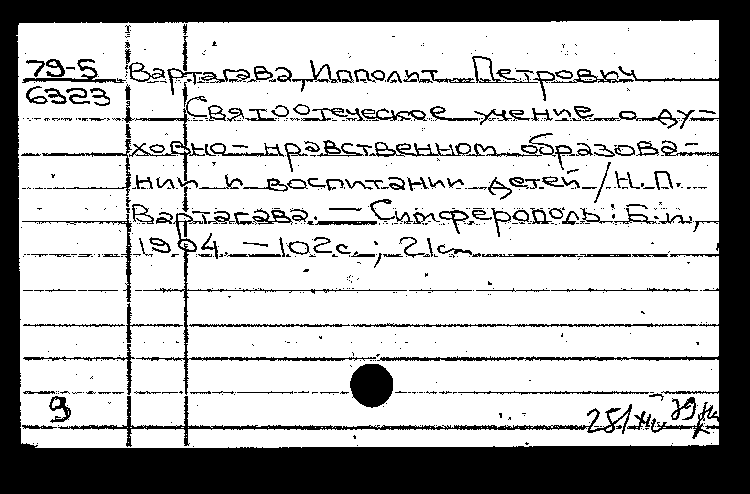 79-5 Вартагава, Ипполит Петрович
6323 Святоотеческое учение о ду-
ховно-нравственном образова-
нии и воспитании детей / И.П.
Вартагава. — Симферополь: Б.и.,
1904. — 102с.; 21см
9